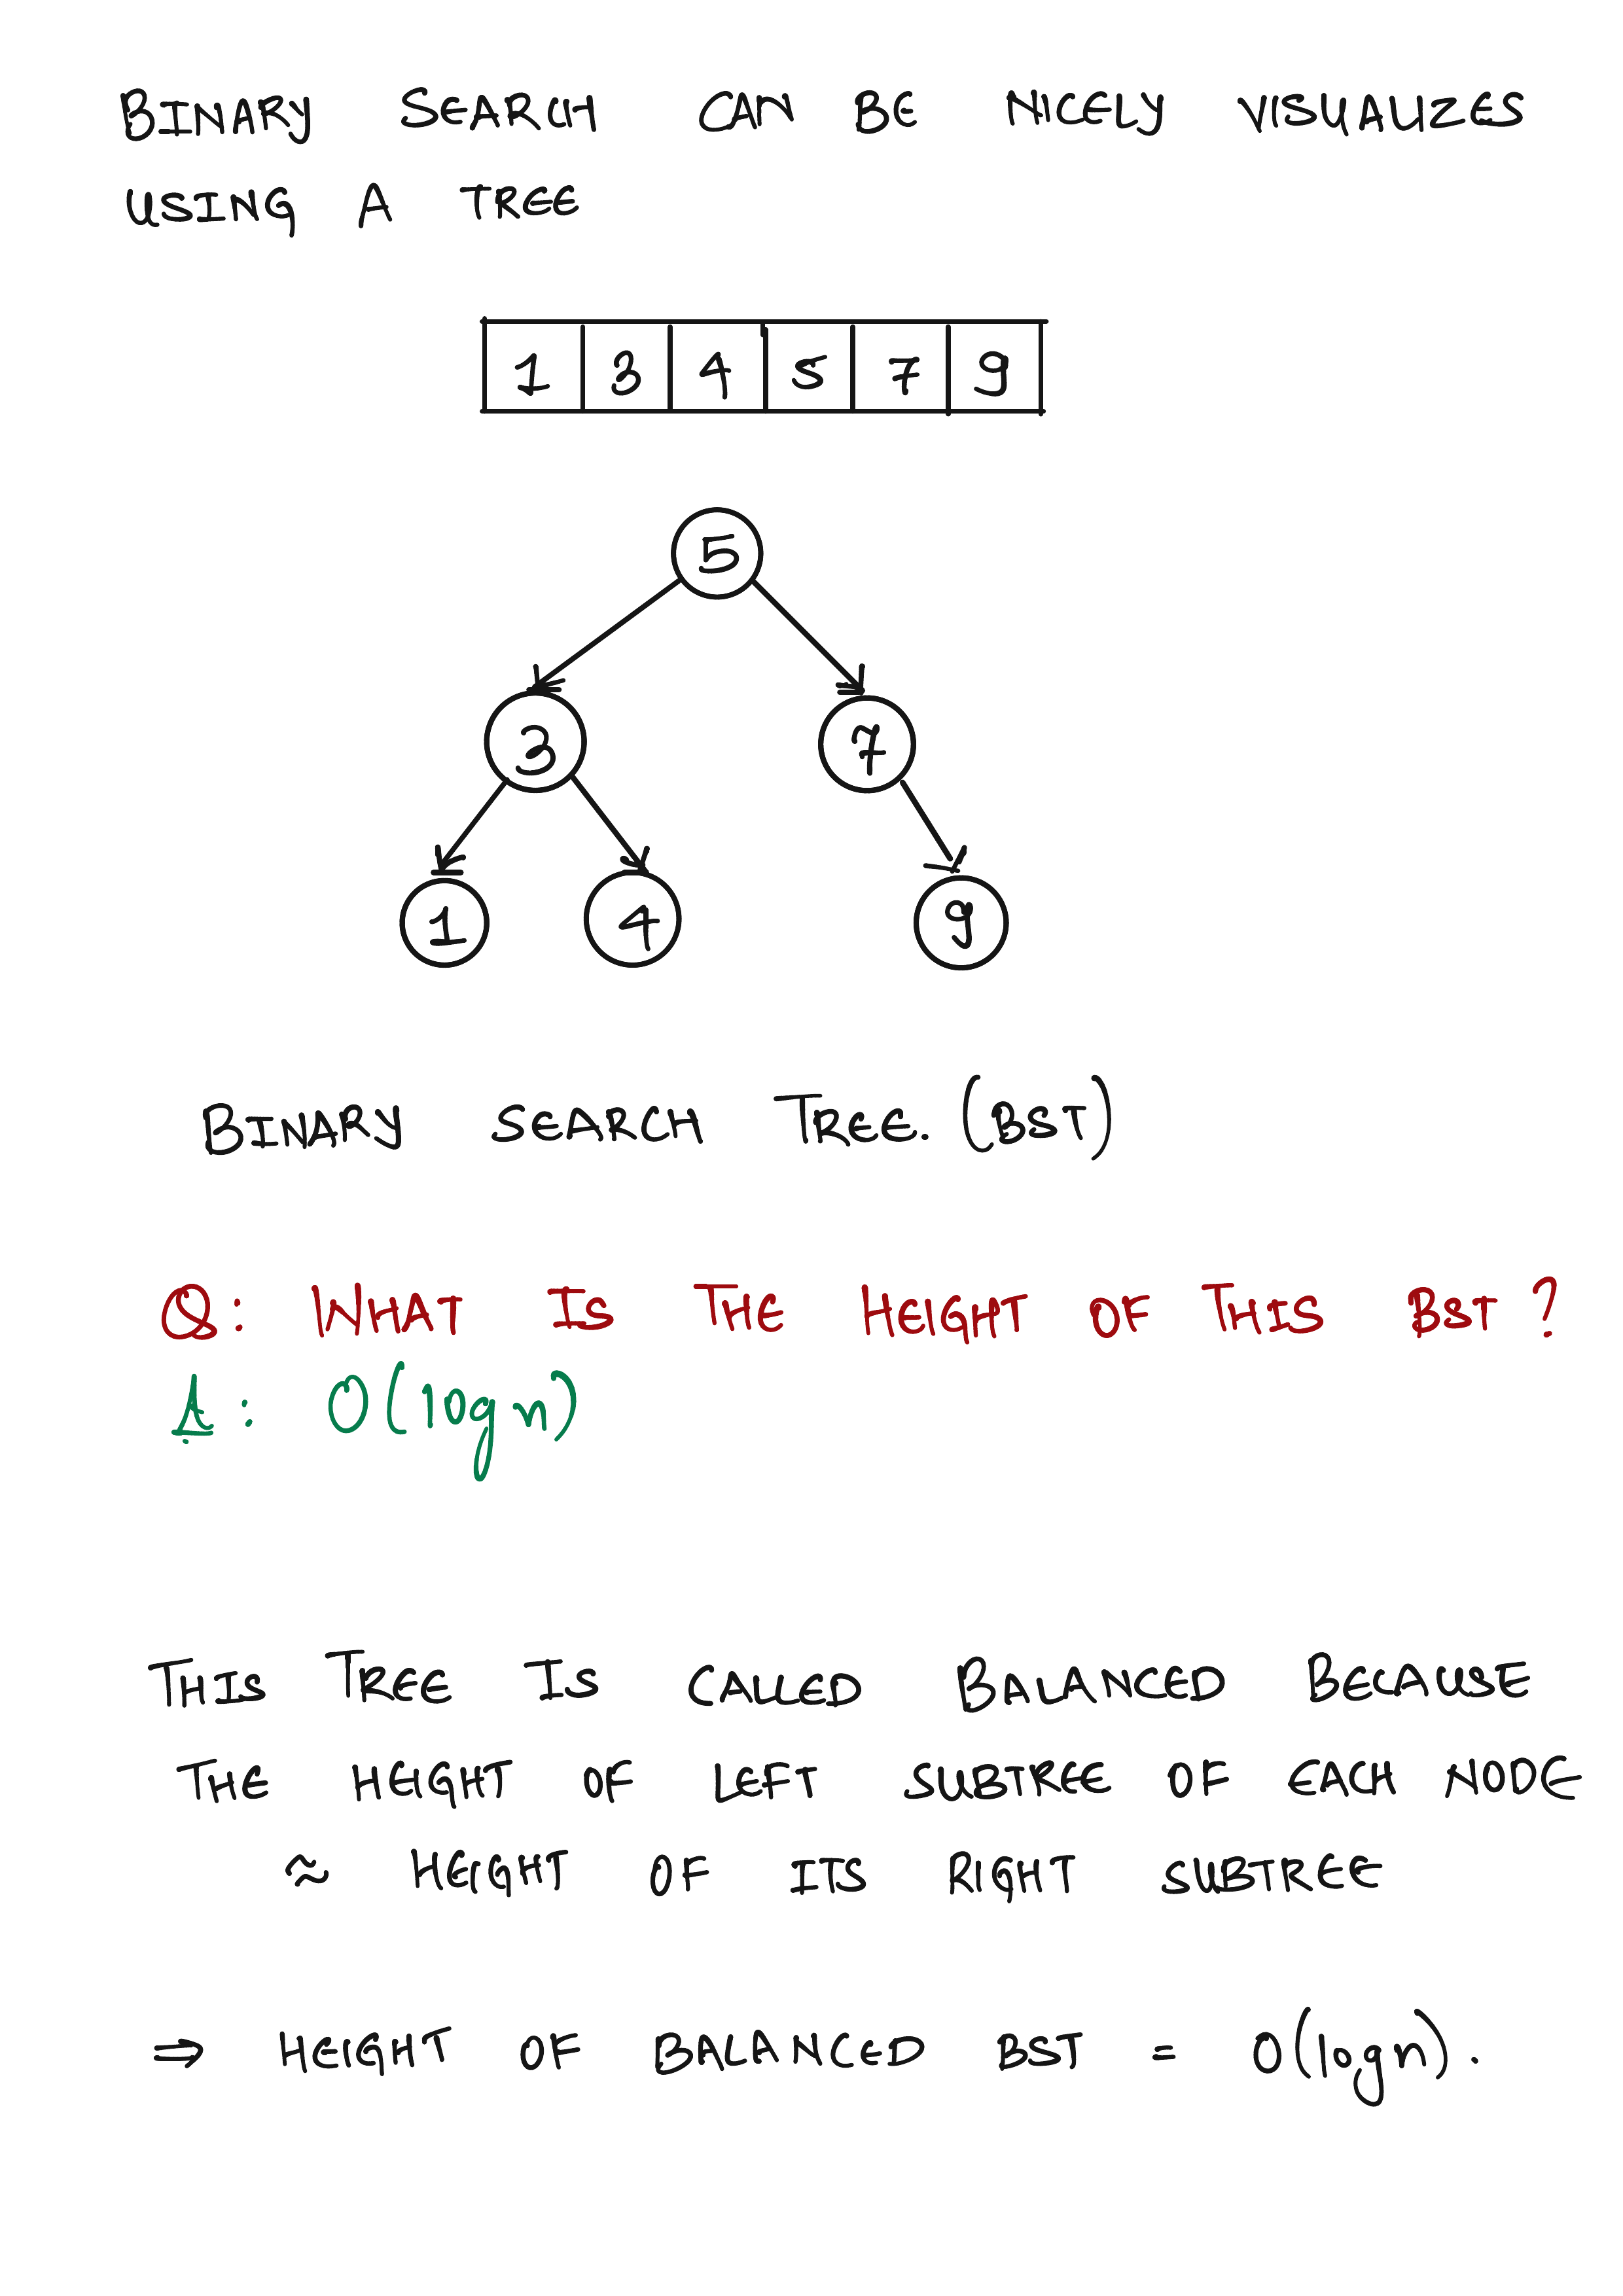 BINARY SEARCH CAN BE NICELY VISUALIZES
USING A TREE
1 3 4 5 7 9
5
3 7
1 4 9
BINARY SEARCH TREE. (BST)
Q: WHAT IS THE HEIGHT OF THIS BST?
A: O(log n)
THIS TREE IS CALLED BALANCED BECAUSE
THE HEIGHT OF LEFT SUBTREE OF EACH NODE
≈ HEIGHT OF ITS RIGHT SUBTREE
⇒ HEIGHT OF BALANCED BST = O(log n).